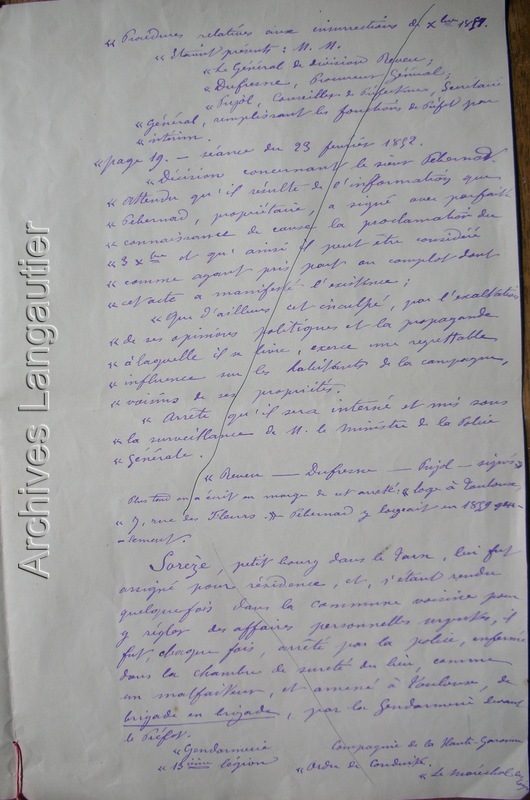 « Procédures relatives aux insurrections de Xbre 1851.
« Etaient présents : M. M.
« Le Général de division Reveu ;
« Dufresne, Procureur Général ;
« Pujol, Conseiller de Préfecture, Secrétaire
« Général, remplissant les fonctions de Préfet par
« intérim.
« page 19. — séance du 23 février 1852.
« Décision concernant le sieur Pébernad.
« Attendu qu'il résulte de l'information que
« Pébernad, propriétaire, a signé avec parfaite
« connaissance de cause la proclamation du
« 3 Xbre et qu'ainsi il peut être considéré
« comme ayant pris part au complot dont
« cet acte a manifesté l'existence ;
« Que d'ailleurs cet inculpé, par l'exaltation
« de ses opinions politiques et la propagande
« à laquelle il se livre, exerce une regrettable
« influence sur les habitants de la campagne,
« voisins de ses propriétés.
« Arrête qu'il sera interné et mis sous
« la surveillance de M. le Ministre de la Police
« Générale.
« Reveu — Dufresne — Pujol — signés »
Plus tard on a écrit en marge de cet arrêté : « loge à Toulouse
« 7, rue des Fleurs. » Pébernad y logeait en 1859
Sorèze, petit bourg dans le Tarn, lui fut
assigné pour résidence, et, s'étant rendu
quelquefois dans la commune voisine pour
y régler des affaires personnelles urgentes, il
fut, chaque fois, arrêté par la police, enfermé
dans la chambre de sureté du lieu, comme
un malfaiteur, et amené à Toulouse, de
brigade en brigade, par la Gendarmerie devant
le Préfet.
« Gendarmerie Compagnie de la Haute-Garonne
« 13ième légion « Ordre de Conduite.
« Le maréchal des
Archives Langautier